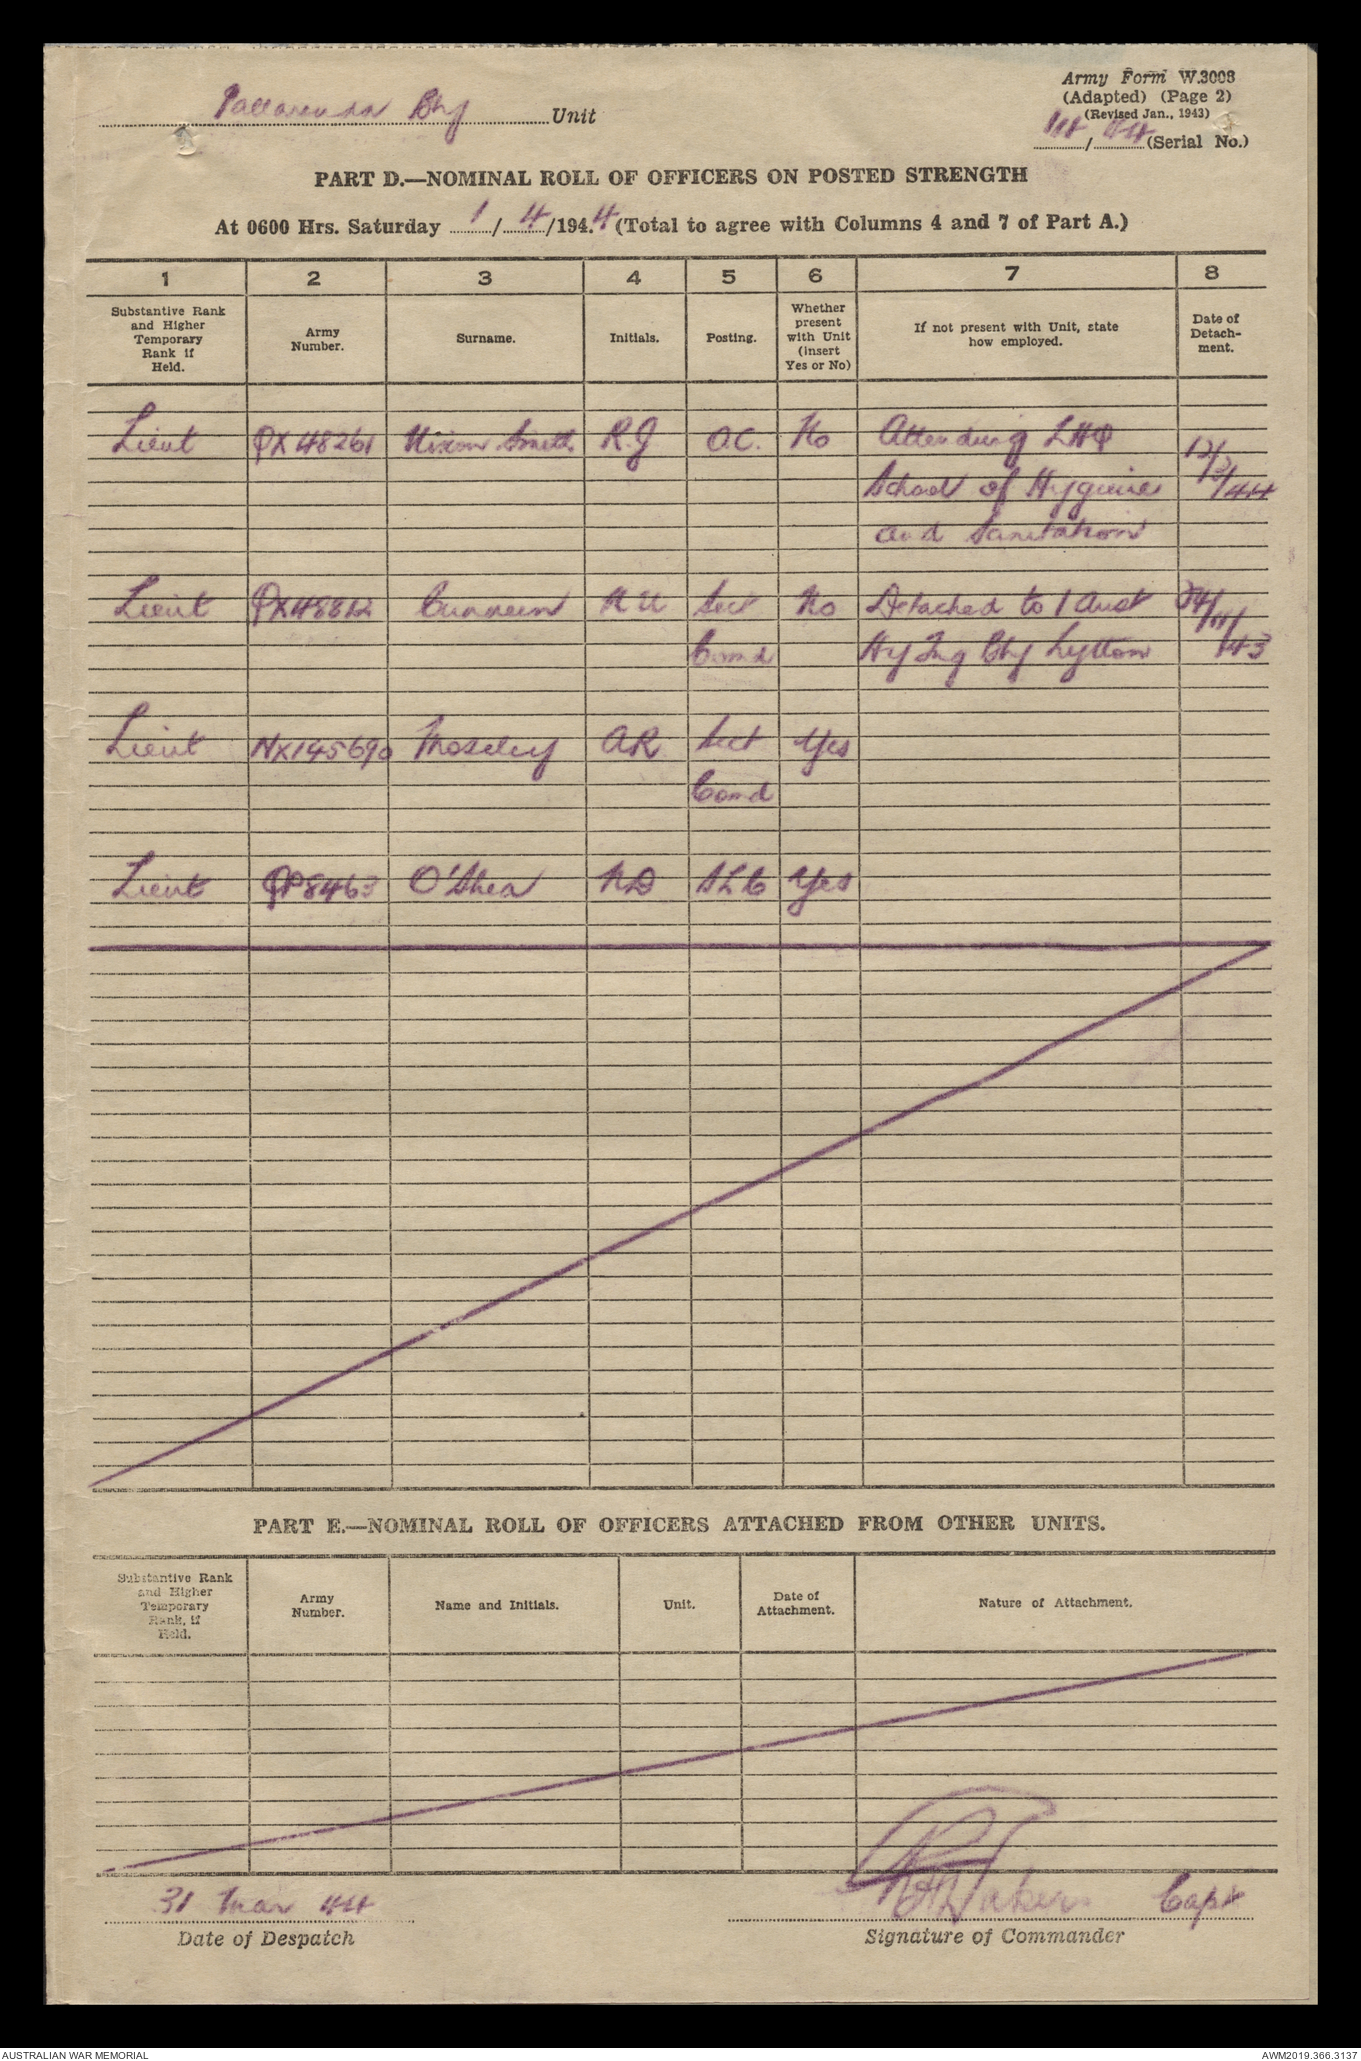 Pallarenda Bty Unit
Army Form W.3008
(Adapted) (Page 2)
(Revised Jan., 1943)
/ 44 (Serial No.)
PART D.—NOMINAL ROLL OF OFFICERS ON POSTED STRENGTH
At 0600 Hrs. Saturday 1/4/1944 (Total to agree with Columns 4 and 7 of Part A.)
1 2 3 4 5 6 7 8
Substantive Rank and Higher Temporary Rank if Held. Army Number. Surname. Initials. Posting. Whether present with Unit (insert Yes or No) If not present with Unit, state how employed. Date of Detach-ment.
Lieut QX48261 Nixon Smith R.J O.C. No Attending LHQ 12/3/44
School of Hygiene
and Sanitation
Lieut QX48812 N U Sect No Detached to 1 Aust 24/11/43
Comd Hy Trg Bty Lytton
Lieut NX145690 Moseley AR Sect Yes
Comd
Lieut QP8463 O'Shea ND SLC Yes
PART E.—NOMINAL ROLL OF OFFICERS ATTACHED FROM OTHER UNITS.
Substantive Rank and Higher Temporary Rank, if Held. Army Number. Name and Initials. Unit. Date of Attachment. Nature of Attachment.
31 Mar 44 Capt
Date of Despatch Signature of Commander
AUSTRALIAN WAR MEMORIAL AWM2019.366.3137